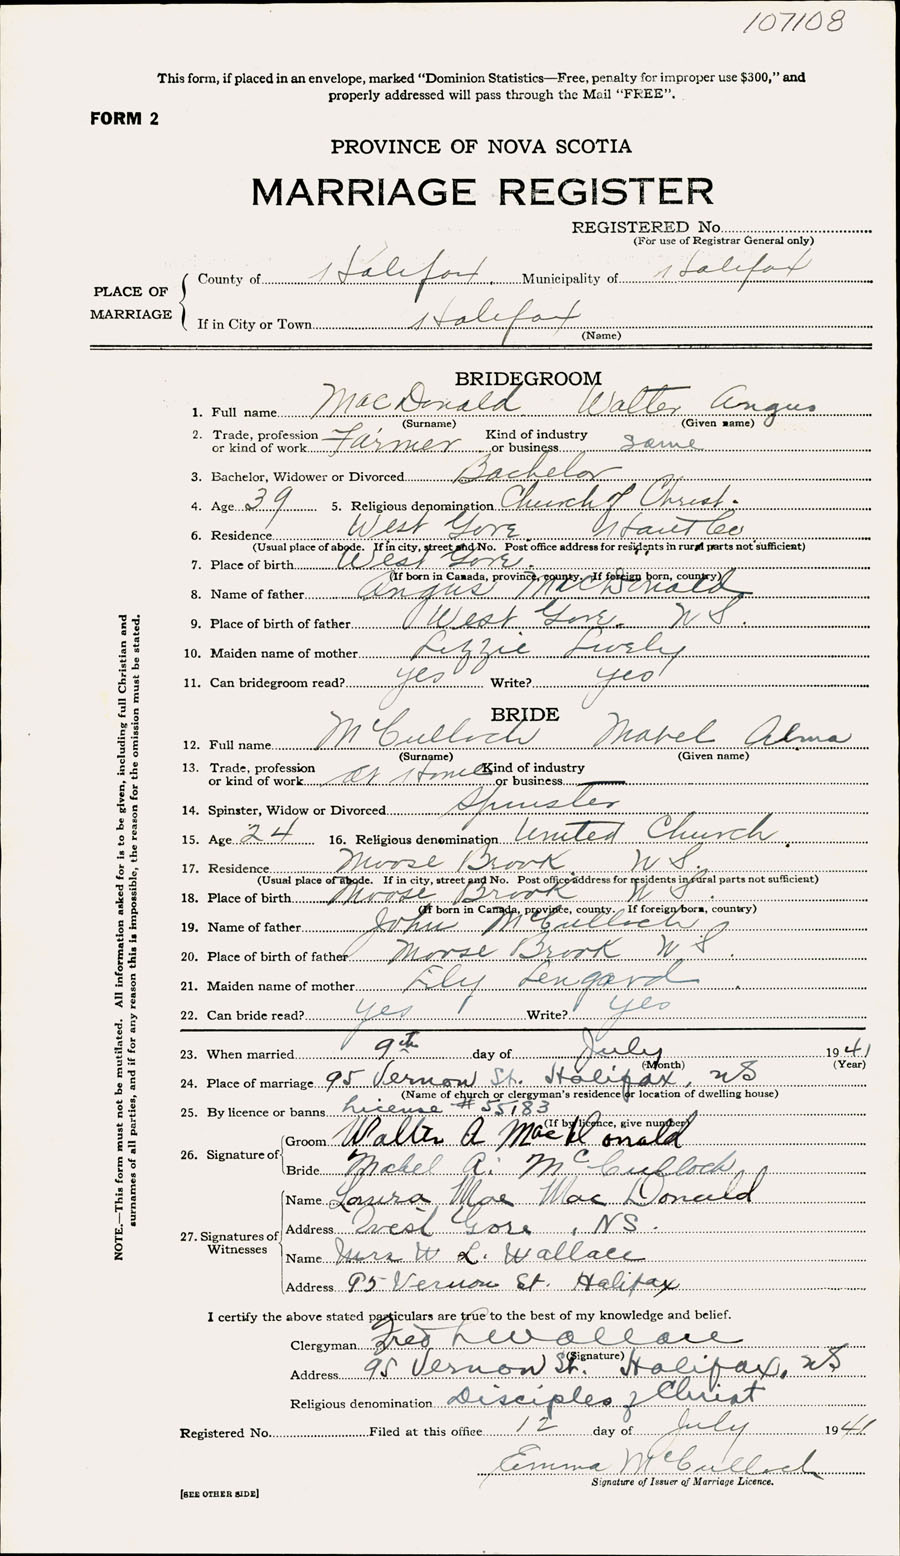 107108
This form, if placed in an envelope, marked “Dominion Statistics—Free, penalty for improper use $300,” and
properly addressed will pass through the Mail “FREE”.
FORM 2
PROVINCE OF NOVA SCOTIA
MARRIAGE REGISTER
REGISTERED No.
(For use of Registrar General only)
PLACE OF MARRIAGE
County of Halifax Municipality of Halifax
If in City or Town Halifax
(Name)
BRIDEGROOM
1. Full name MacDonald Walter Angus
(Surname) (Given name)
2. Trade, profession or kind of work Farmer Kind of industry or business same
3. Bachelor, Widower or Divorced Bachelor
4. Age 39 5. Religious denomination Church of Christ.
6. Residence West Gore Hant Co
(Usual place of abode. If in city, street and No. Post office address for residents in rural parts not sufficient)
7. Place of birth West Gore.
(If born in Canada, province, county. If foreign born, country)
8. Name of father Angus MacDonald
9. Place of birth of father West Gore. N S.
10. Maiden name of mother Lizzie Lively
11. Can bridegroom read? yes Write? yes
BRIDE
12. Full name McCulloch Mabel Alma
(Surname) (Given name)
13. Trade, profession or kind of work At Home Kind of industry or business —
14. Spinster, Widow or Divorced Spinster
15. Age 24 16. Religious denomination United Church.
17. Residence Moose Brook N S.
(Usual place of abode. If in city, street and No. Post office address for residents in rural parts not sufficient)
18. Place of birth Moose Brook N S.
(If born in Canada, province, county. If foreign born, country)
19. Name of father John McCulloch
20. Place of birth of father Moose Brook N S.
21. Maiden name of mother
22. Can bride read? yes Write? yes
23. When married 9th day of July 1941
(Month) (Year)
24. Place of marriage 95 Vernon St. Halifax, NS
(Name of church or clergyman's residence or location of dwelling house)
25. By licence or banns License # 55183
(If by licence, give number)
26. Signature of
Groom Walter A MacDonald
Bride Mabel A. McCulloch
27. Signatures of Witnesses
Name Laura Mae Mac Donald
Address West Gore, NS.
Name Mrs W L. Wallace
Address 95 Vernon St. Halifax
I certify the above stated particulars are true to the best of my knowledge and belief.
Clergyman Fred Wallace
(Signature)
Address 95 Vernon St. Halifax, NS
Religious denomination Disciples of Christ
Registered No. Filed at this office 12 day of July 1941
Emma McCulloch
Signature of Issuer of Marriage Licence.
[SEE OTHER SIDE]
NOTE.—This form must not be mutilated. All information asked for is to be given, including full Christian and
surnames of all parties, and if for any reason this is impossible, the reason for the omission must be stated.